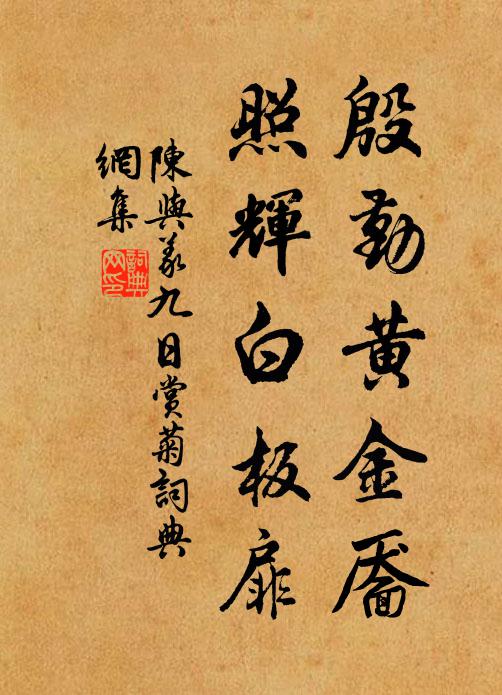 殷勤黄金靥
照輝白板扉
陳與義九日賞菊詞典
網集
詞典网印